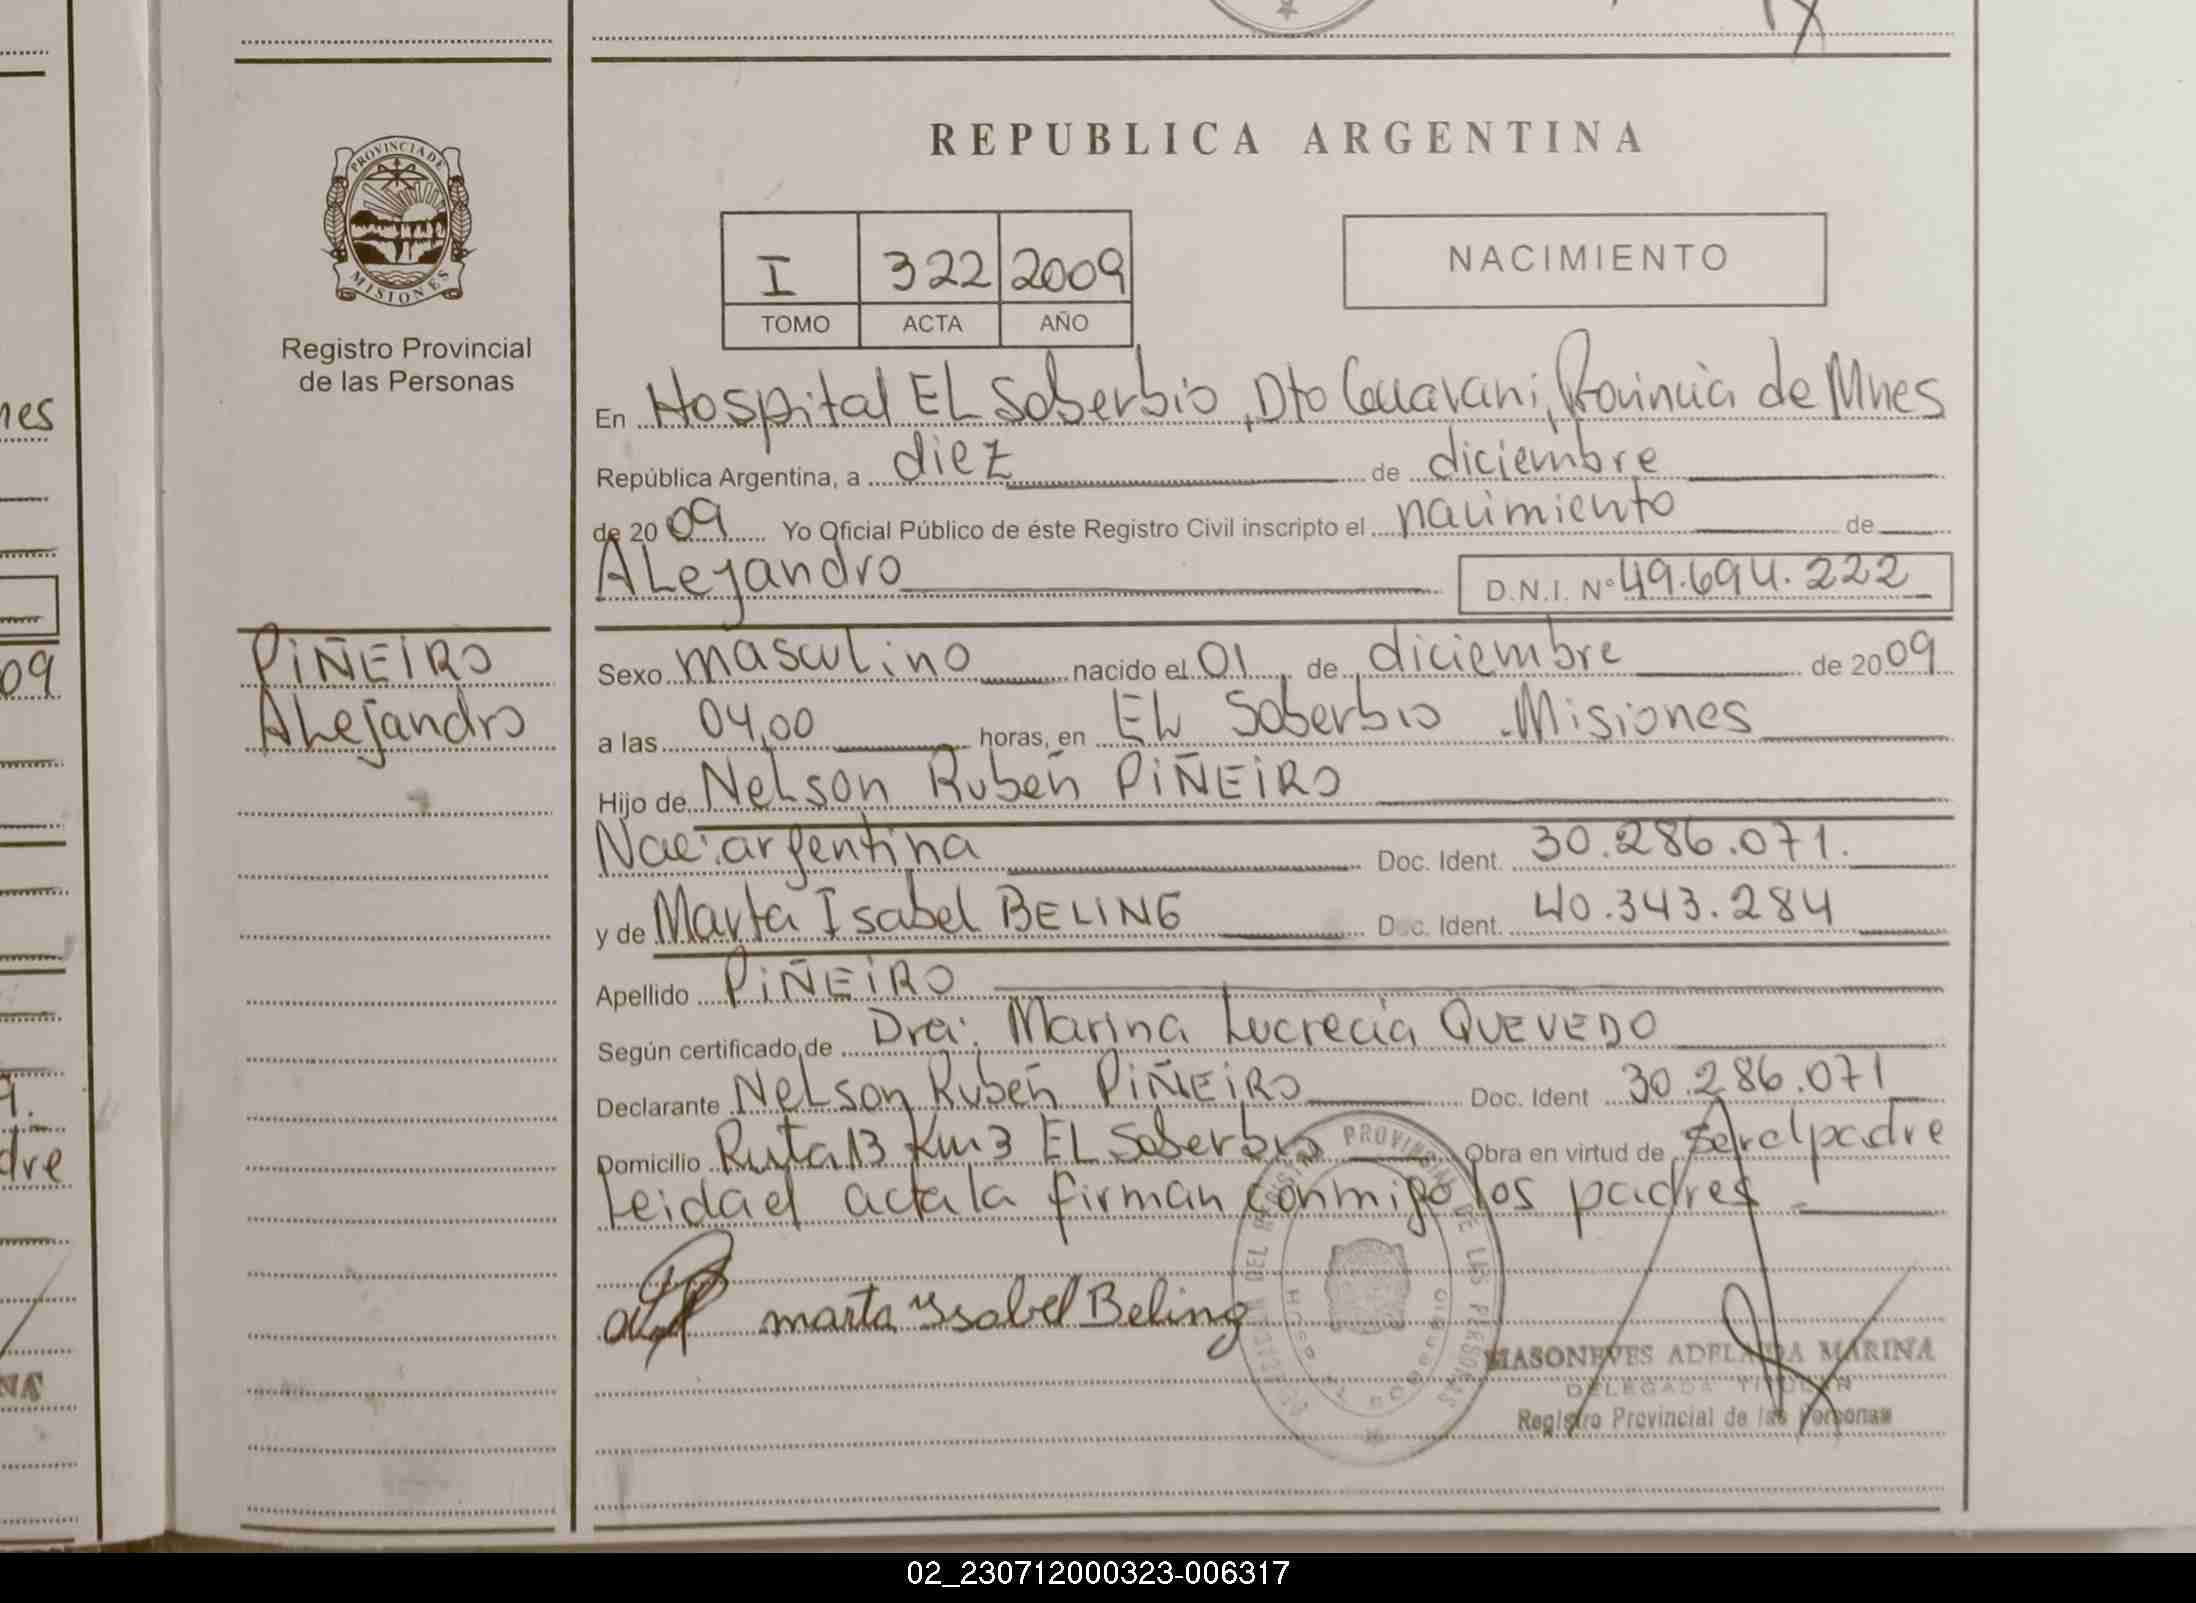 REPUBLICA ARGENTINA
PROVINCIA DE
MISIONES
Registro Provincial
de las Personas
I 322 2009
TOMO ACTA AÑO
NACIMIENTO
En Hospital EL Soberbio, Dto Guarani, Provincia de Mnes
República Argentina, a diez de diciembre
de 2009 Yo Oficial Público de éste Registro Civil inscripto el nacimiento de
ALejandro D.N.I. Nº 49.694.222
PIÑEIRO
ALejandro
Sexo masculino nacido el 01 de diciembre de 2009
a las 04,00 horas, en EL Soberbio Misiones
Hijo de NeLson Rubén PIÑEIRO
Nac: argentina Doc. Ident. 30.286.071.
y de Marta Isabel BELING Doc. Ident. 40.343.284
Apellido PIÑEIRO
Según certificado de Dra: Marina Lucrecia QUEVEDO
Declarante NeLson Rubén PIÑEIRO Doc. Ident 30.286.071
Domicilio Ruta 13 Km 3 EL Soberbio Obra en virtud de ser el padre
Leida el acta la firman conmigo los padres
marta Ysabel Beling
PROVINCIAL DE LAS PERSONAS
MASONEVES ADELAIDA MARINA
DELEGADA TITULAR
Registro Provincial de las Personas
nes
09
dre
NA
02_230712000323-006317